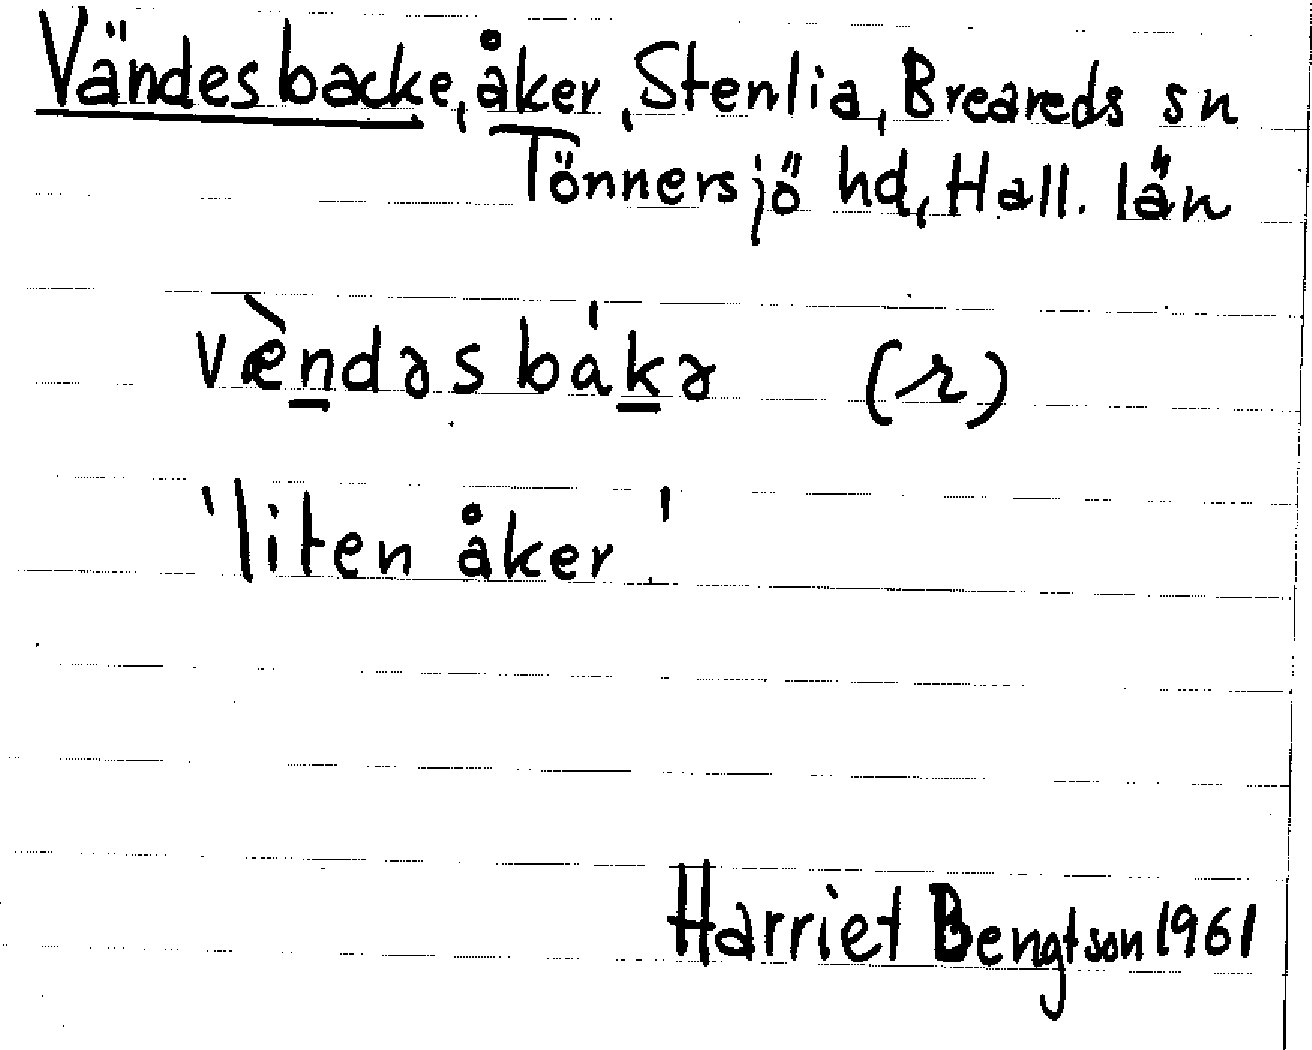 Vändesbacke, åker, Stenlia, Breareds sn
Tönnersjö hd, Hall. län
væ̀ndəsbákə (r)
'liten åker'
Harriet Bengtson 1961